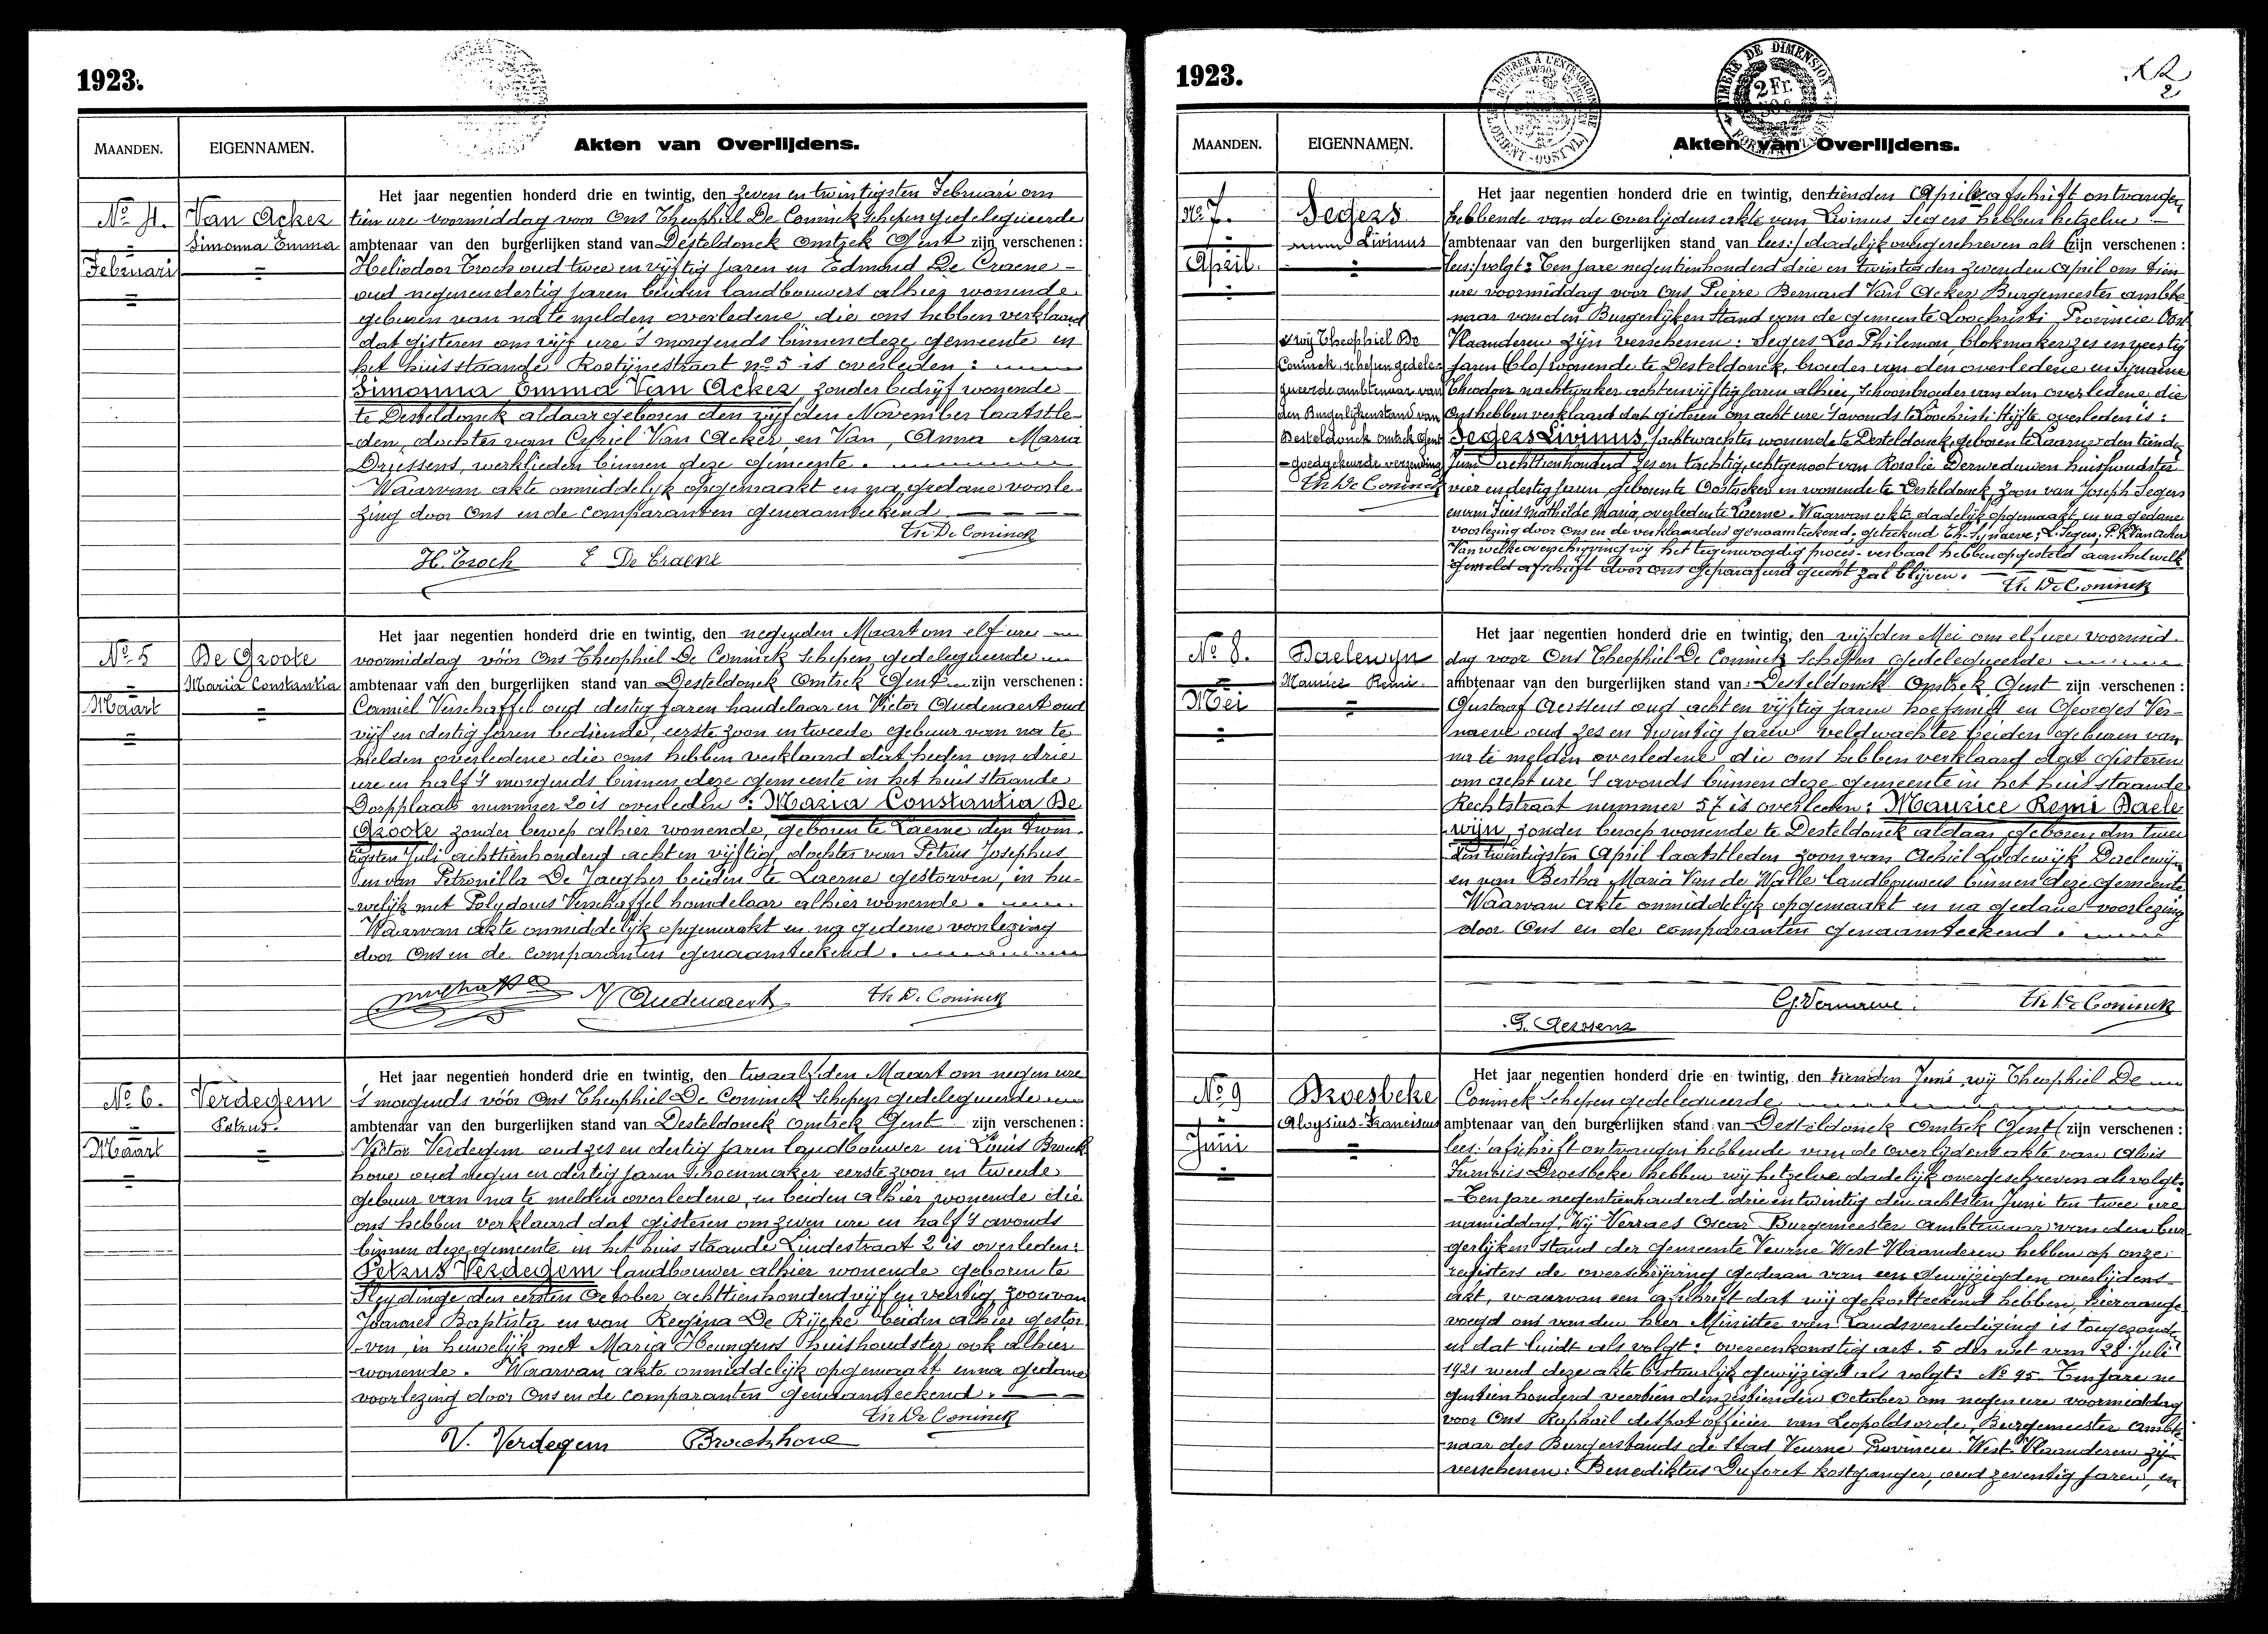 1923.
MAANDEN.
EIGENNAMEN.
Akten van Overlijdens.
No 4.
Februari
Van Acker
Simonna Emma
Het jaar negentien honderd drie en twintig, den zeven en twintigsten Februari om
tien ure voormiddag voor Ons Theophiel De Coninck Schepen gedelegueerde
ambtenaar van den burgerlijken stand van Desteldonck Omtrek Gent zijn verschenen:
Heliodoor Troch oud twee en vijftig jaren en Edmond De Craene
oud negen en dertig jaren beiden landbouwers alhier wonende
geburen van na te melden overledene die ons hebben verklaard
dat gisteren om vijf ure 's morgends binnen deze gemeente in
het huis staande Rostijnestraat no 5 is overleden:
Simonna Emma Van Acker zonder bedrijf wonende
te Desteldonck aldaar geboren den vijfden November laatstle-
den, dochter van Cyriel Van Acker en Van, Anna Maria
Driessens, werklieden binnen deze gemeente.
Waarvan akte onmiddelijk opgemaakt en na gedane voorle-
zing door Ons en de comparanten genaamteekend
Th De Coninck
H. Troch E De Craene
No 5
Maart
De Groote
Maria Constantia
Het jaar negentien honderd drie en twintig, den negenden Maart om elf ure
voormiddag vóór Ons Theophiel De Coninck Schepen gedelegueerde
ambtenaar van den burgerlijken stand van Desteldonck Omtrek Gent zijn verschenen:
Camiel Verschaffel oud dertig jaren handelaar en Victor Audenaert oud
vijf en dertig jaren bediende, eerste zoon en tweede gebuur van na te
melden overledene die ons hebben verklaard dat heden om drie
ure en half 's morgends binnen deze gemeente in het huis staande
Dorpplaats nummer 20 is overleden: Maria Constantia De
Groote zonder beroep alhier wonende, geboren te Laerne den twin-
tigsten Juli achttienhonderd acht en vijftig, dochter van Petrus Josephus
en van Petronilla De Jaegher beiden te Laerne gestorven, in hu-
welijk met Polydorus Verschaffel handelaar alhier wonende.
Waarvan akte onmiddelijk opgemaakt en na gedane voorlezing
door Ons en de comparanten genaamteekend.
V Audenaert Th De Coninck
No 6.
Maart
Verdegem
Petrus.
Het jaar negentien honderd drie en twintig, den twaalfden Maart om negen ure
's morgends vóór Ons Theophiel De Coninck Schepen gedelegueerde
ambtenaar van den burgerlijken stand van Desteldonck Omtrek Gent zijn verschenen:
Victor Verdegem oud zes en dertig jaren landbouwer en Louis Broeck
hove oud negen en dertig jaren schoenmaker eerste zoon en tweede
gebuur van na te melden overledene, en beiden alhier wonende die
ons hebben verklaard dat gisteren om zeven ure en half 's avonds
binnen deze gemeente in het huis staande Lindestraat 2 is overleden:
Petrus Verdegem landbouwer alhier wonende geboren te
Sleydinge den eersten October achttienhonderd vijf en veertig, zoon van
Joannes Baptista en van Regina De Rijcke beiden alhier gestor
-ven, in huwelijk met Maria huishoudster ook alhier
wonende. Waarvan akte onmiddelijk opgemaakt en na gedane
voorlezing door Ons en de comparanten genaamteekend.
Th De Coninck
V. Verdegem Broeckhove
1923.
2
TIMBRE DE DIMENSION
2 Fr.
MAANDEN.
EIGENNAMEN.
Akten van Overlijdens.
No 7.
April.
Segers
Livinus
Het jaar negentien honderd drie en twintig, den tienden April afschrift ontvangen
hebbende van de overlijdens akte van Livinus Segers hebben hetzelve
ambtenaar van den burgerlijken stand van lees:/ dadelijk overgeschreven als (zijn verschenen:
lees:/ volgt: Ten jare negentienhonderd drie en twintig den zevenden April om tien
ure voormiddag voor Ons Pierre Bernard Van Acker Burgemeester ambte-
naar van den Burgerlijken Stand van de gemeente Loochristi, Provincie Oost
Vlaanderen zijn verschenen: Segers Leo Philemon, blokmaker zes en veertig
jaren wonende te Desteldonck, broeder van den overledene en Synaeve
Theodoor nachtwaker achtenvijftig jaren alhier, schoonbroeder van den overledene, die
Ons hebben verklaard dat gisteren om acht ure 's avonds te Loochristi Hijfte overleden is:
Segers Livinus, jachtwachter wonende te Desteldonck, geboren te Laarne den tiende
Juni achttienhonderd zes en tachtig, echtgenoot van Rosalie Derweduwen huishoudster
vier en dertig jaren geboren te Oostacker en wonende te Desteldonck, zoon van Joseph Segers
en van Mathilde Maria, overleden te Laerne. Waarvan akte dadelijk opgemaakt en na gedane
voorlezing door Ons en de verklaarders genaamteekend. geteekend Th. Synaeve, L. Segers, P. B. Van Acker
Van welke overschrijving wij het tegenwoordig proces-verbaal hebben opgesteld aan hetwelk
gemeld afschrift door ons geparafeerd gehecht zal blijven.
Th. De Coninck
wij Theophiel De
Coninck, schepen gedele-
gueerde ambtenaar van
den Burgerlijkenstand van
Desteldonck omtrek Gent
goedgekeurde verzending
Th De Coninck
No 8.
Mei
Daelewyn
Maurice Remi.
Het jaar negentien honderd drie en twintig, den vijfden Mei om elf ure voormid-
dag voor Ons Theophiel De Coninck Schepen gedelegueerde
ambtenaar van den burgerlijken stand van Desteldonck Omtrek Gent zijn verschenen:
Gustaaf Aerssens oud acht en vijftig jaren hoefsmid en Georges Ver-
naeve oud zes en twintig jaren veldwachter beiden geburen van
na te melden overledene die ons hebben verklaard dat gisteren
om acht ure 's avonds binnen deze gemeente in het huis staande
Rechtstraat nummer 57 is overleden: Maurice Remi Daele
wijn, zonder beroep wonende te Desteldonck aldaar geboren den twee
den twintigsten April laatstleden zoon van Achiel Lodewijk Daelewijn
en van Bertha Maria Van de Walle landbouwers binnen deze gemeente.
Waarvan akte onmiddelijk opgemaakt en na gedane voorlezing
door Ons en de comparanten genaamteekend.
G. Vernaeve. Th De Coninck
G. Aerssens
No 9
Juni
Droesbeke
Aloysius-Franciscus
Het jaar negentien honderd drie en twintig, den tienden Juni, wij Theophiel De
Coninck Schepen gedelegueerde
ambtenaar van den burgerlijken stand van Desteldonck Omtrek Gent (zijn verschenen:
lees: afschrift ontvangen hebbende van de overlijdens akte van Alois
Droesbeke hebben wij hetzelve dadelijk overgeschreven als volgt:
Ten jare negentienhonderd drie en twintig den achtsten Juni ten twee ure
namiddag, Wij Verraes Oscar Burgemeester Ambtenaar van den bur
gerlijken Stand der gemeente Veurne West Vlaanderen hebben op onze
registers de overschrijving gedaan van een gewijzigden overlijdens-
akt, waarvan een afschrift dat wij gekortteekend hebben, hieraange
voegd ons van den heer Minister van Landsverdediging is toegezonden
en dat luidt als volgt: overeenkomstig art. 5 der wet van 28 Juli
1921 werd deze akte bestuurlijk gewijzigd als volgt: No 95. Ten jare ne
gentien honderd veertien den zestienden October om negen ure voormiddag
voor Ons Raphaël despot officier van Leopoldsorde, Burgemeester Ambte
naar des Burgerstands de Stad Veurne Provincie West Vlaanderen zijn
verschenen: Benediktus Duforet kostganger, oud zeventig jaren, en